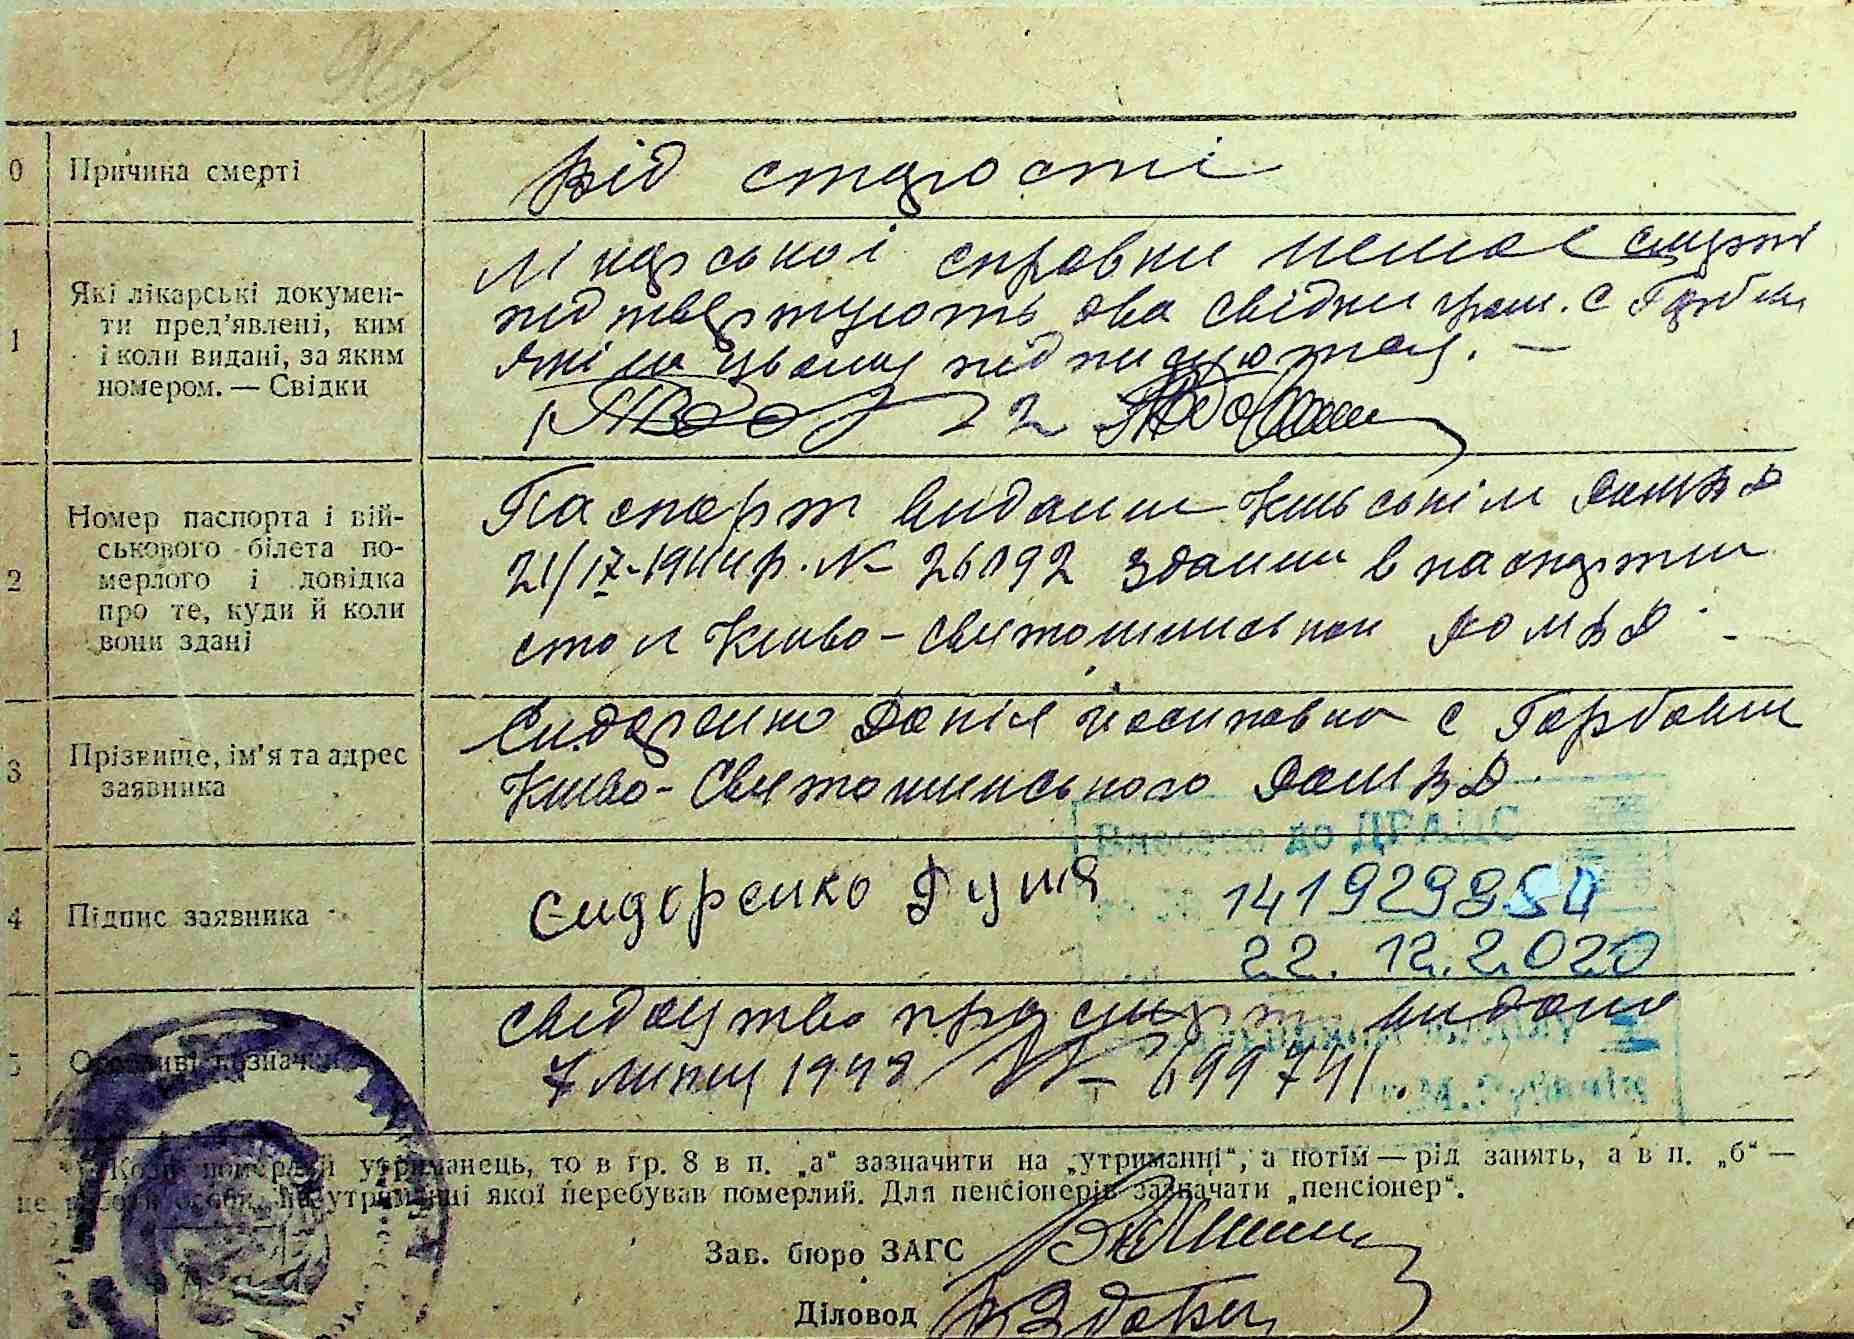 0 Причина смерті Від старості
1 Які лікарські докумен-
ти пред'явлені, ким
і коли видані, за яким
номером. — Свідки
Лікарської справки немає смерть
підтверджують два свідки гром. с Горбов
які на цьому підписуються. —
1 2
2 Номер паспорта і вій-
ськового білета по-
мерлого і довідка
про те, куди й коли
вони здані
Паспорт виданий Київським
21/IV-1944р. № 26092 зданий в паспортний
стол Києво-Святошинської
3 Прізвище, ім'я та адрес
заявника
Сидоренко Йосиповна с
Києво-Святошинського
4 Підпис заявника Сидоренко
Внесено до ДРАЦС
22.12.2020
5 Особливі позначки
свідоцтво про смерть видано
7 липня 1948 № 699741.
Коли померлий утриманець, то в гр. 8 в п. „а“ зазначити на „утриманці“, а потім — рід занять, а в п. „б“ —
це роботи особи, на утриманні якої перебував померлий. Для пенсіонерів зазначати „пенсіонер“.
Зав. бюро ЗАГС
Діловод